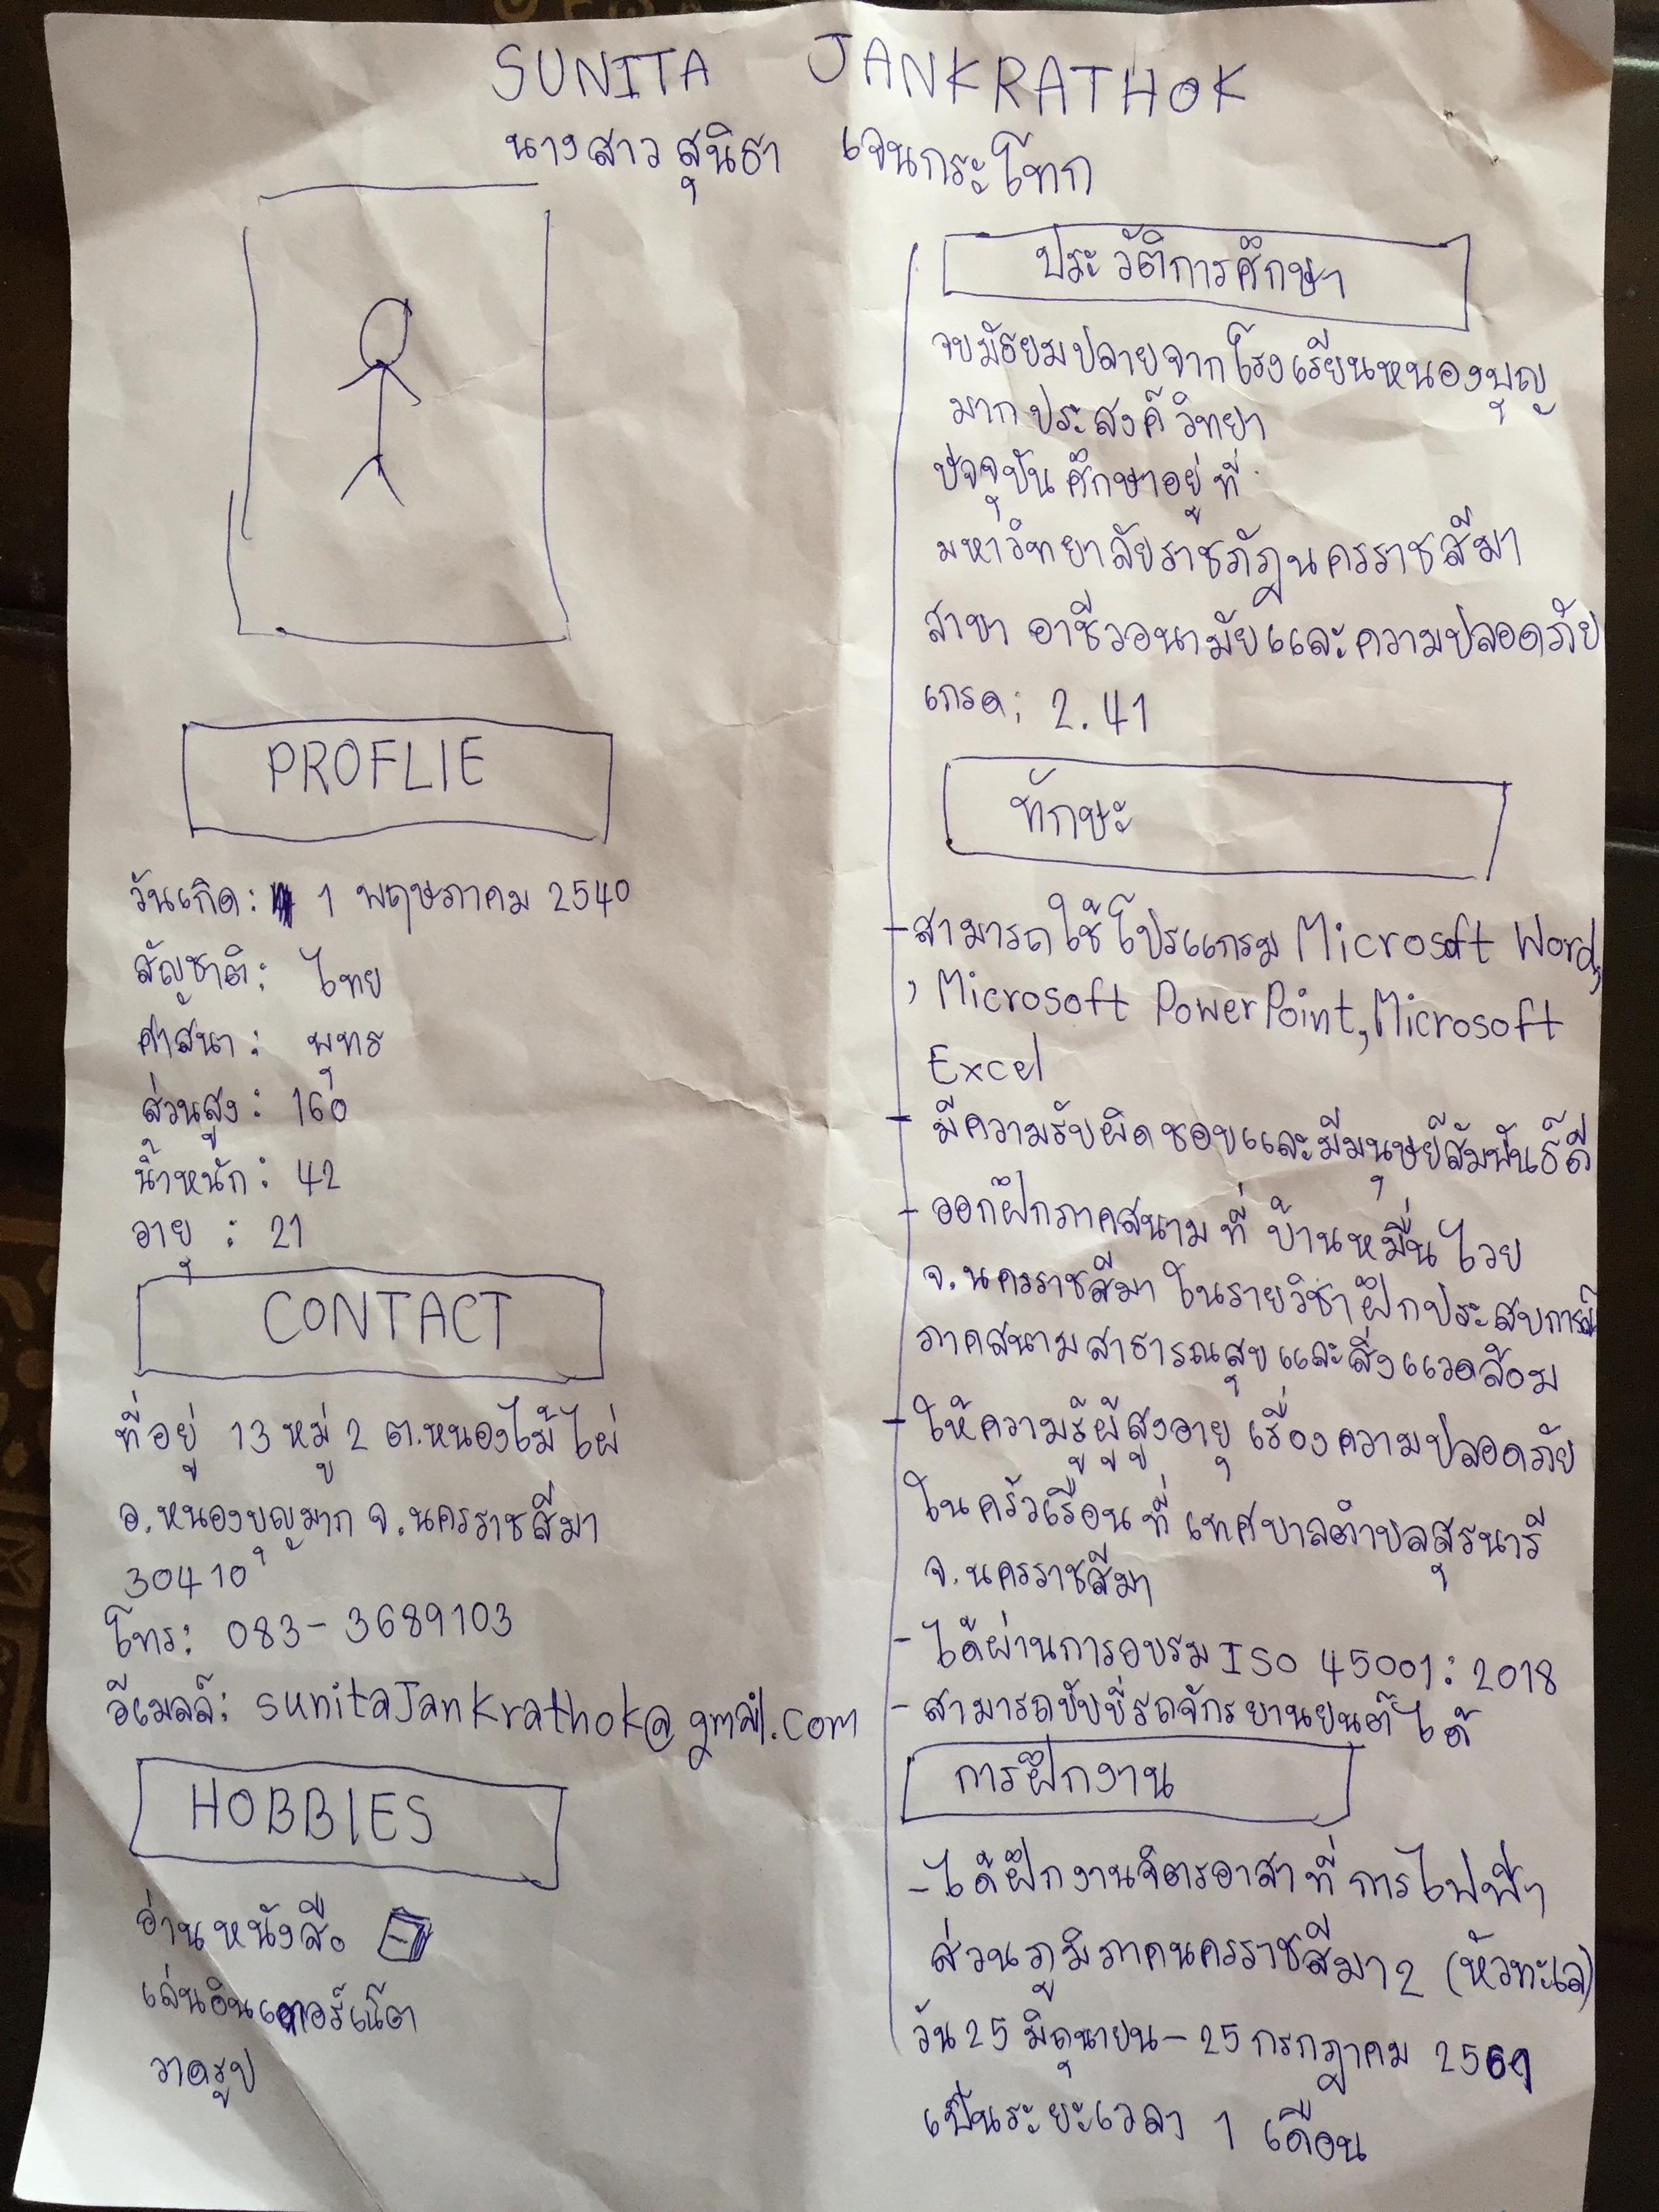 SUNITA JANKRATHOK
นางสาว สุนิธา เจนกระโทก
PROFLIE
วันเกิด: 1 พฤษภาคม 2540
สัญชาติ: ไทย
ศาสนา: พุทธ
ส่วนสูง: 160
น้ำหนัก: 42
อายุ: 21
CONTACT
ที่อยู่ 13 หมู่ 2 ต.หนองไม้ไผ่
อ.หนองบุญมาก จ.นครราชสีมา
30410
โทร: 083-3689103
อีเมลล์: sunitaJankrathok@gmail.com
HOBBIES
อ่านหนังสือ
เล่นอินเตอร์เน็ต
วาดรูป
ประวัติการศึกษา
จบมัธยมปลายจากโรงเรียนหนองบุญ
มากประสงค์วิทยา
ปัจจุบันศึกษาอยู่ที่
มหาวิทยาลัยราชภัฏนครราชสีมา
สาขา อาชีวอนามัยและความปลอดภัย
เกรด: 2.41
ทักษะ
- สามารถใช้โปรแกรม Microsoft Word,
, Microsoft PowerPoint, Microsoft
Excel
- มีความรับผิดชอบและมีมนุษย์สัมพันธ์ดี
- ออกฝึกภาคสนามที่ บ้านหมื่นไวย
จ.นครราชสีมา ในรายวิชาฝึกประสบการณ์
ภาคสนามสาธารณสุขและสิ่งแวดล้อม
- ให้ความรู้ผู้สูงอายุ เรื่องความปลอดภัย
ในครัวเรือนที่ เทศบาลตำบลสุรนารี
จ.นครราชสีมา
- ได้ผ่านการอบรม ISO 45001: 2018
- สามารถขับขี่รถจักรยานยนต์ได้
การฝึกงาน
- ได้ฝึกงานจิตรอาสาที่ การไฟฟ้า
ส่วนภูมิภาคนครราชสีมา 2 (หัวทะเล)
วัน 25 มิถุนายน - 25 กรกฎาคม 2561
เป็นระยะเวลา 1 เดือน